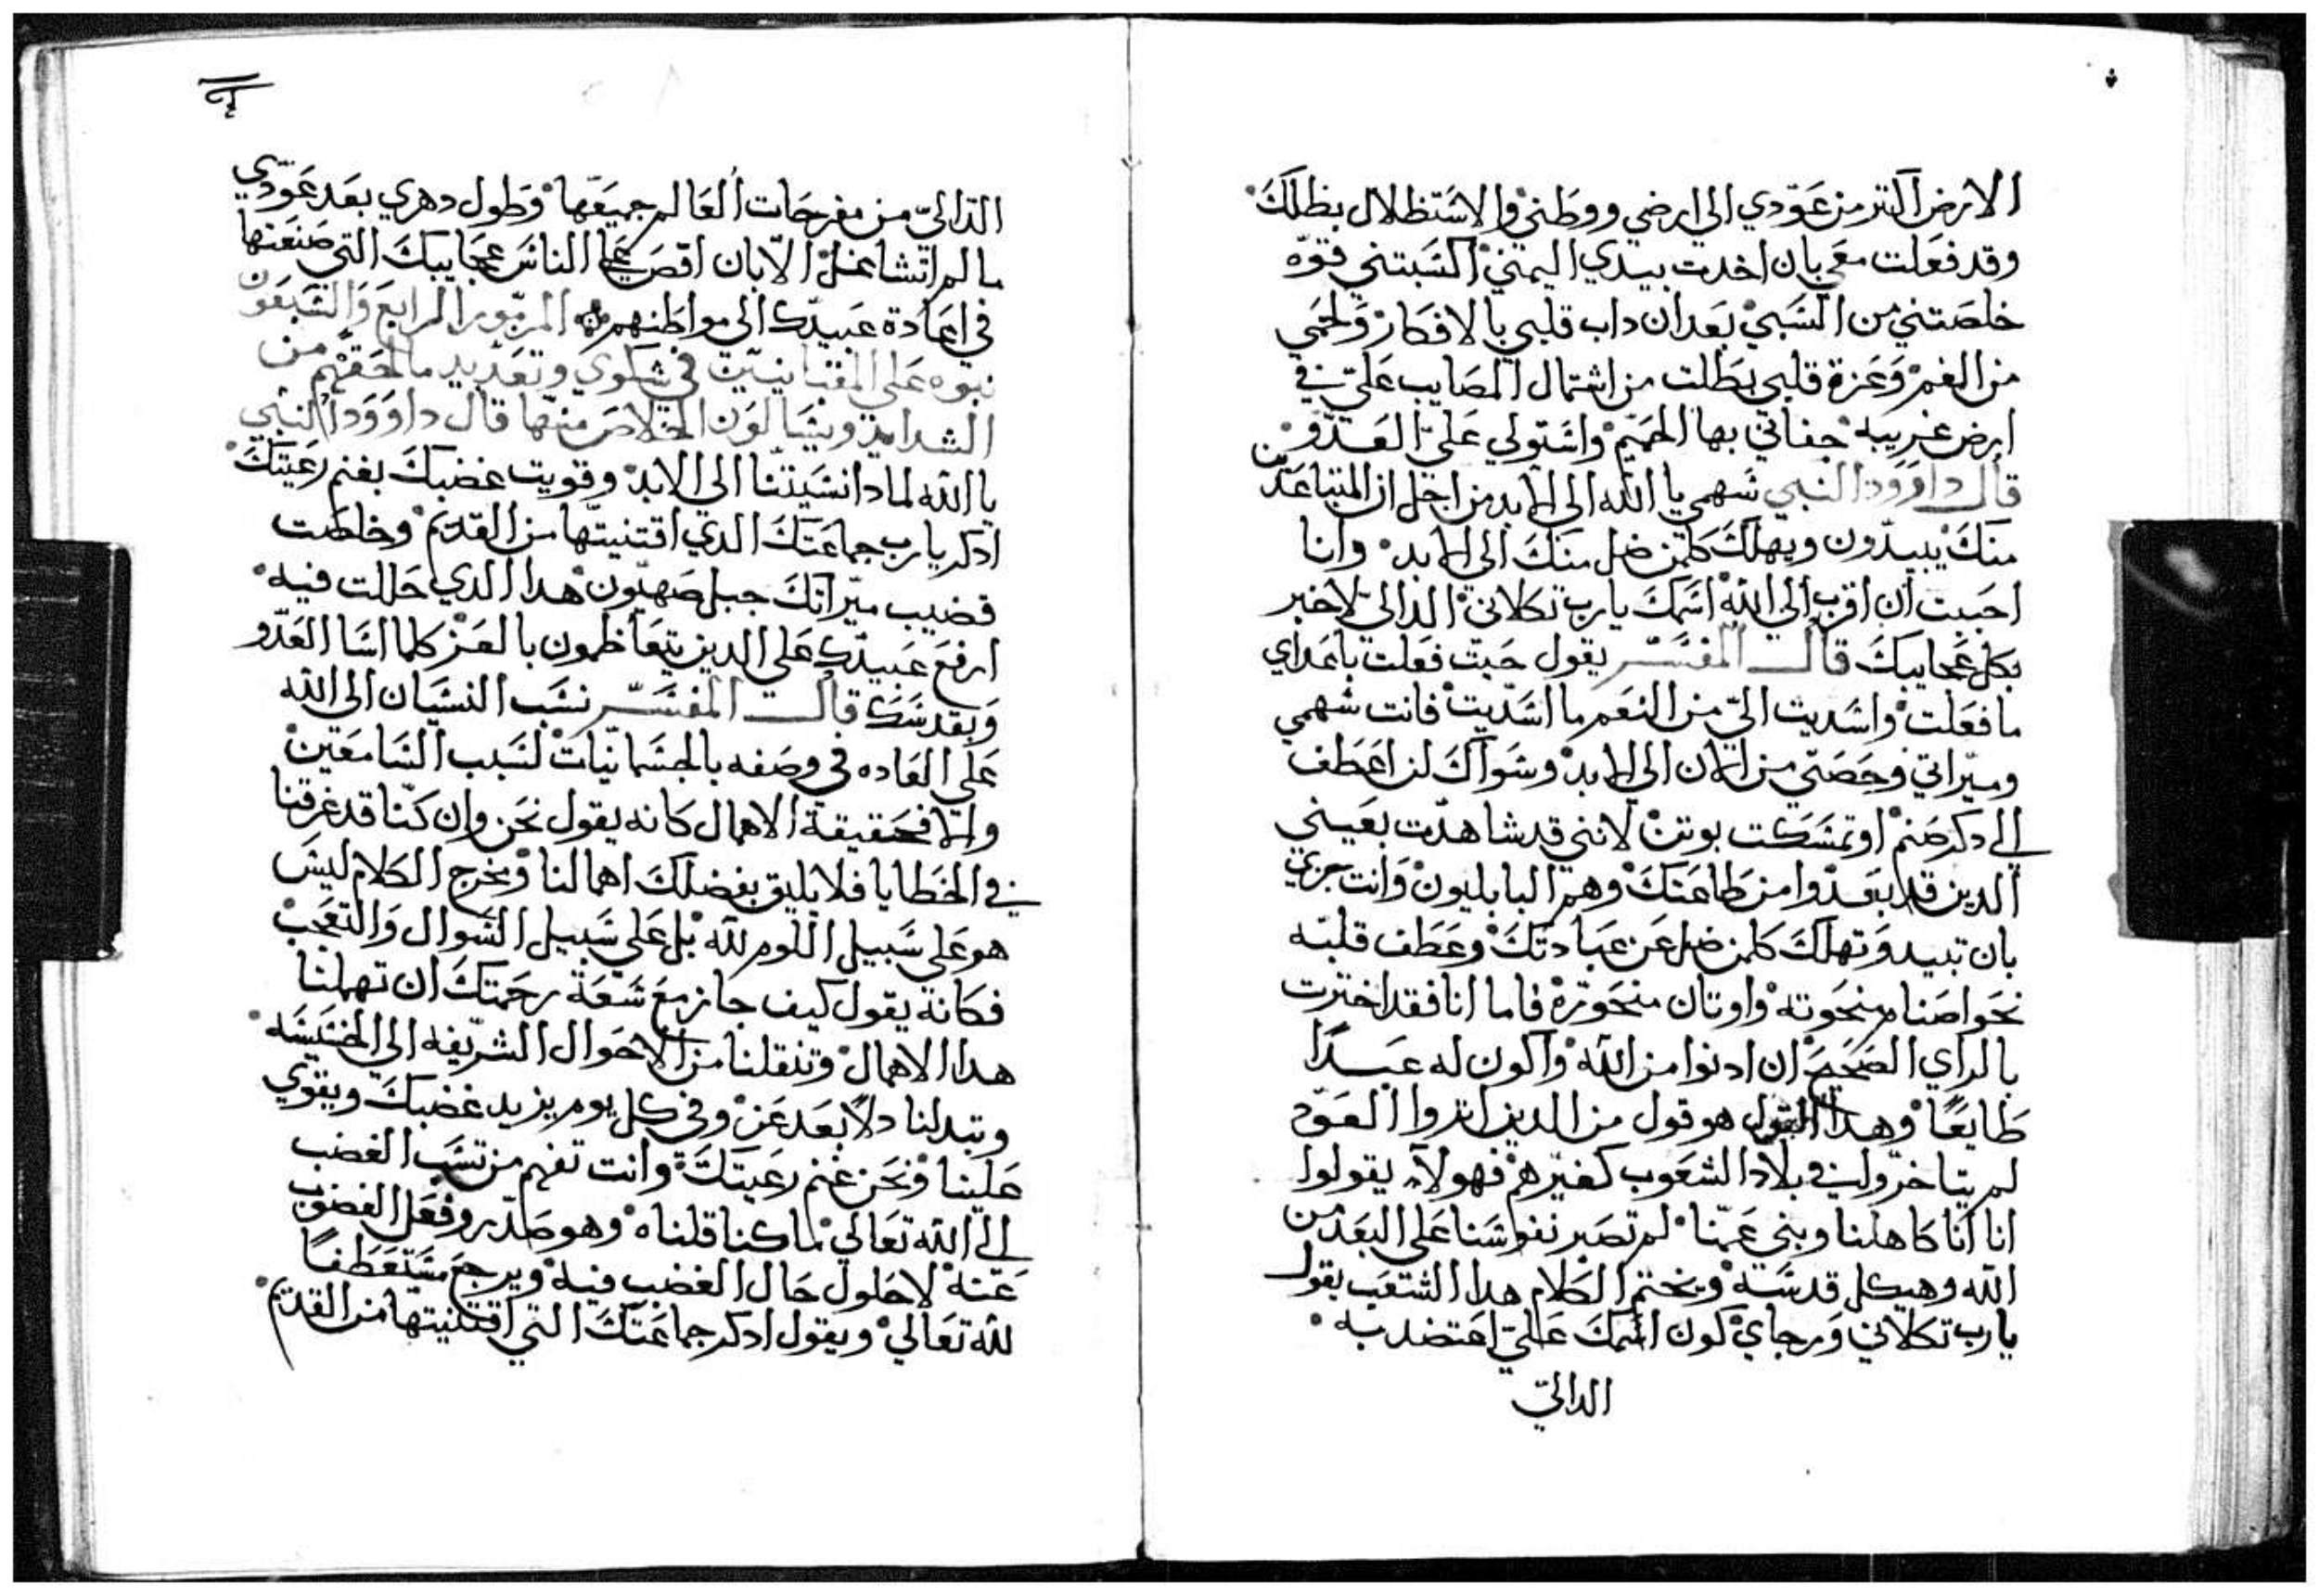 الارض اكتر من عودي الى ارضي ووطني والاستظلال بظلك
وقد فعلت معي بان اخدت بيدي اليمني اكسبتني قوه
خلصتني من السبي بعد ان داب قلبي بالافكار ولحمي
من الغم وعزة قلبي بطلت من اشتمال المصايب علي في
ارض غريبه جفاني بها الحميم واستولي علي العدو
قال داوود النبي سهمي يا الله الى الابد من اجل ان المتباعدين
منك يبيدون ويهلك كلمن ضل منك الى الابد وانا
احببت ان اقرب الي الله اسمك يارب تكلاني الدالي لاخبر
بكل عجايبك قال المفسر يقول حيت فعلت باعداي
ما فعلت واسديت الي من النعم ما اسديت فانت سهمي
وميراتي وحصتي من الان الي الابد وسواك لن اعطف
الي دكر صنم او تمسكت بوتن لانني قد شاهدت بعيني
الدين قد بعدوا من طاعتك وهم البابليون وانت جري
بان تبيد وتهلك كلمن ضل عن عبادتك وعطف قلبه
نحو اصنام منحوته واوتان منحوتة فاما انا فقد اخترت
بالراي الصحيح ان ادنوا من الله واكون له عبدًا
طايعًا وهدا القول هو قول من الدين اتروا العود
لم يتاخروا في بلاد الشعوب كغيرهم فهولاء يقولوا
انا انا كاهلنا وبني عمنا لم تصبر نفوسنا على البعد من
الله وهيكل قدسه ويختم الكلام هدا الشعب يقول
يارب تكلاني ورجاي كون اسمك عالي اعتضد به
الدالي
الدالي من مفرحات العالم جميعها وطول دهري بعد عودي
ما لم اتشاغل الا بان اقص على الناس عجايبك التي صنعتها
في اعادة عبيدك الى مواطنهم المزمور الرابع والسبعون
نبوه على المقبانيين في شكوي وتعديد ما لحقهم من
الشدايد ويسالون الخلاص منها قال داوود النبي
يا الله لمادا نسيتنا الى الابد وقويت غضبك بغنم رعيتك
ادكر يارب جماعتك الدي اقتنيتها من القديم وخلصت
قضيب ميراتك جبل صهيون هدا الدي حللت فيه
ارفع عبيدك على الدين يتعاظمون بالعز كلما اسا العدو
وبقدسك قال المفسر نسب النسيان الى الله
على العاده في وصفه بالجسمانيات لسبب السامعين
والا فحقيقة الاهمال كانه يقول نحن وان كنا قد غرقنا
في الخطايا فلا يليق بفضلك اهمالنا ومخرج الكلام ليس
هو على سبيل اللوم لله بل على سبيل السوال والتعجب
فكانه يقول كيف جاز مع سعة رحمتك ان تهملنا
هدا الاهمال وتنقلنا من الاحوال الشريفه الي الخسيسه
وتبدلنا دلًا بعد عز وفي كل يوم يزيد غضبك ويقوي
علينا ونحن غنم رعيتك وانت تفهم من نسب الغضب
الي الله تعالي ما كنا قلناه وهو صدر وفعل الغضب
عنه لا حلول حال الغضب فيه ويرجع مستعطفًا
لله تعالي ويقول ادكر جماعتك التي اقتنيتها من القديم